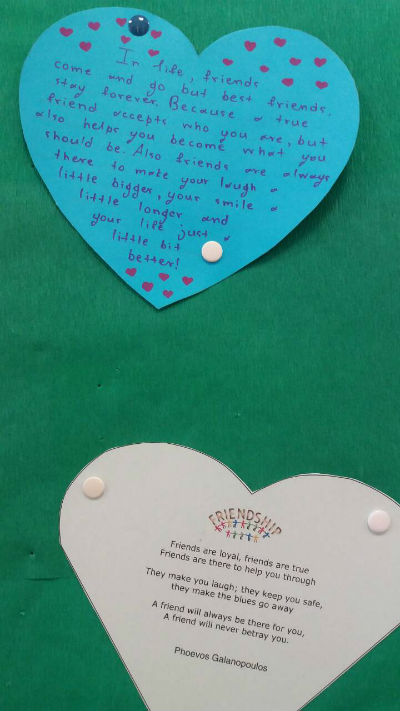 In life, friends
come and go but best friends.
stay forever. Because a true
friend accepts who you are, but
also helps you become what you
should be. Also friends are always
there to make your laugh a
little bigger, your smile a
little longer and
your life just a
little bit
better!
FRIENDSHIP
Friends are loyal, friends are true
Friends are there to help you through
They make you laugh; they keep you safe,
they make the blues go away
A friend will always be there for you,
A friend will never betray you.
Phoevos Galanopoulos